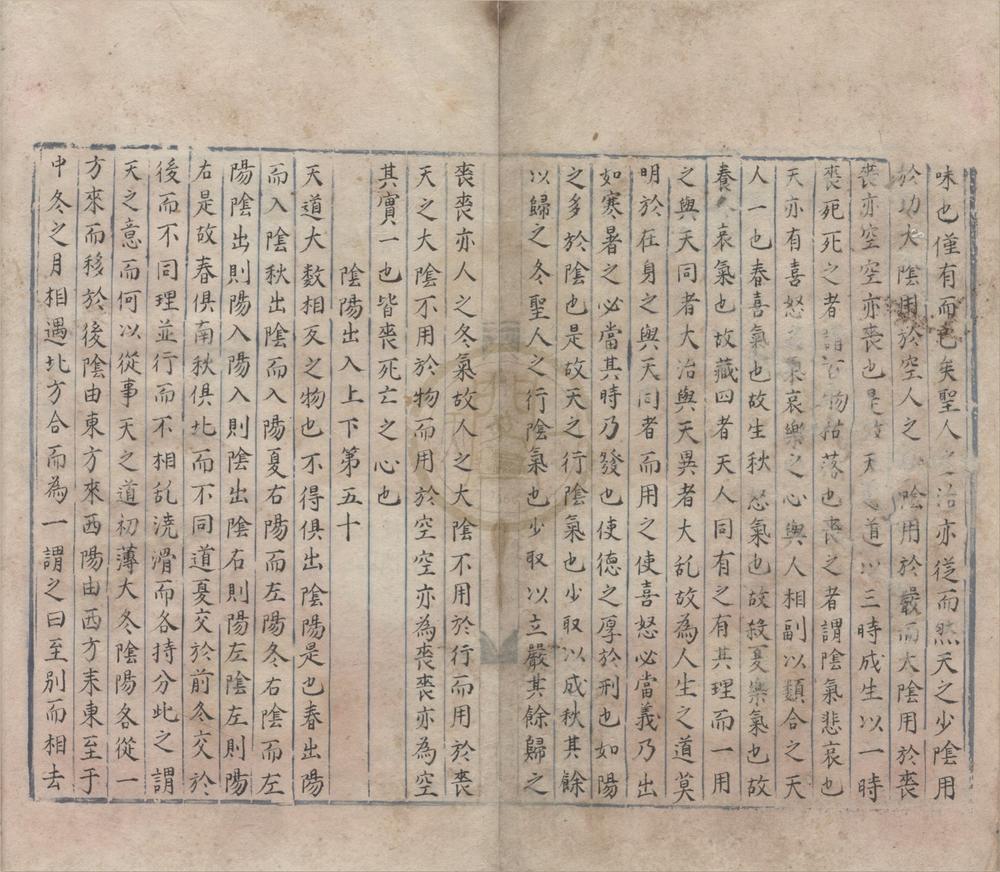 味也僅有而已矣聖人之治亦従而然天之少陰用
於功大陰用於空人之陰用於嚴而大陰用於喪
喪亦空空亦喪也是天道以三時成生以一時
喪死死之者謂百物枯落也喪之者謂陰氣悲哀也
天亦有喜怒之氣哀樂之心與人相副以類合之天
人一也春喜氣也故生秋怒氣也故殺夏樂氣也故
養冬哀氣也故藏四者天人同有之有其理而一用
之與天同者大治與天異者大乱故為人生之道莫
明於在身之與天同者而用之使喜怒必當義乃出
如寒暑之必當其時乃發也使德之厚於刑也如陽
之多於陰也是故天之行陰氣也少取以成秋其餘
以歸之冬聖人之行陰氣也少取以立嚴其餘歸之
喪喪亦人之冬氣故人之大陰不用於行而用於喪
天之大陰不用於物而用於空空亦為喪喪亦為空
其實一也皆喪死亡之心也
陰陽出入上下第五十
天道大数相反之物也不得俱出陰陽是也春出陽
而入陰秋出陰而入陽夏右陽而左陽冬右陰而左
陽陰出則陽入陽入則陰出陰右則陽左陰左則陽
右是故春俱南秋俱北而不同道夏交於前冬交於
後而不同理並行而不相乱澆滑而各持分此之謂
天之意而何以從事天之道初薄大冬陰陽各從一
方來而移於後陰由東方來西陽由西方来東至于
中冬之月相遇北方合而為一謂之曰至别而相去